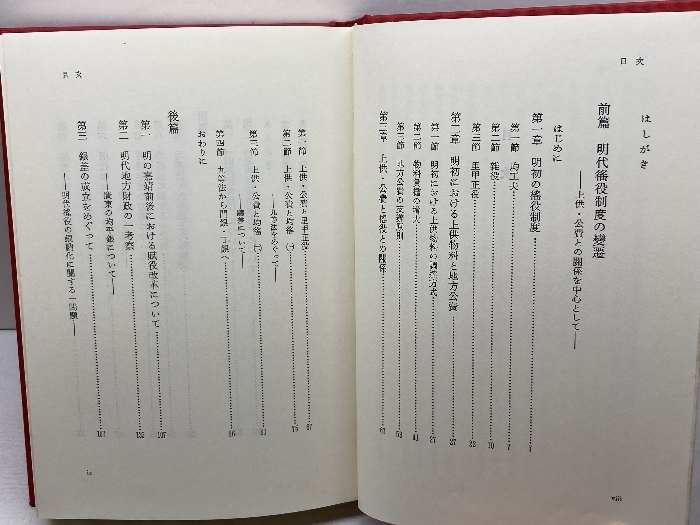 目次
はしがき
前篇 明代徭役制度の變遷
――上供・公費との関係を中心として――
はじめに
第一章 明初の徭役制度 3
第一節 均工夫 7
第二節 雑役 10
第三節 里甲正役 22
第二章 明初における上供物料と地方公費 27
第一節 明初における上供物料の調達方式 27
第二節 物料負擔の増大 41
第三節 地方公費の支辨原則 53
第三章 上供・公費と徭役との關係 67
viii
目次
第一節 上供・公費と里甲正役 67
第二節 上供・公費と均徭 (一) 75
――九等法をめぐって――
第三節 上供・公費と均徭 (二) 81
――聽差について――
第四節 九等法から門銀・丁銀へ 86
おわりに
後篇
第一 明の嘉靖前後における賦役改革について 107
第二 明代地方財政の一考察 135
――廣東の均平銀について――
第三 銀差の成立をめぐって 161
――明代徭役の銀納化に関する一問題――
ix